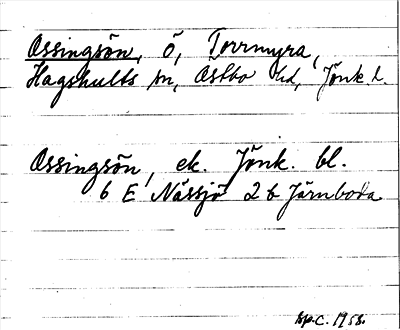 Assingsön, ö, Torrmyra,
Hagshults sn, Östbo hd, Jönk. l.
Assingsön, ek. Jönk. bl.
6 E Nässjö 2 b Järnboda
sp.c. 1958.